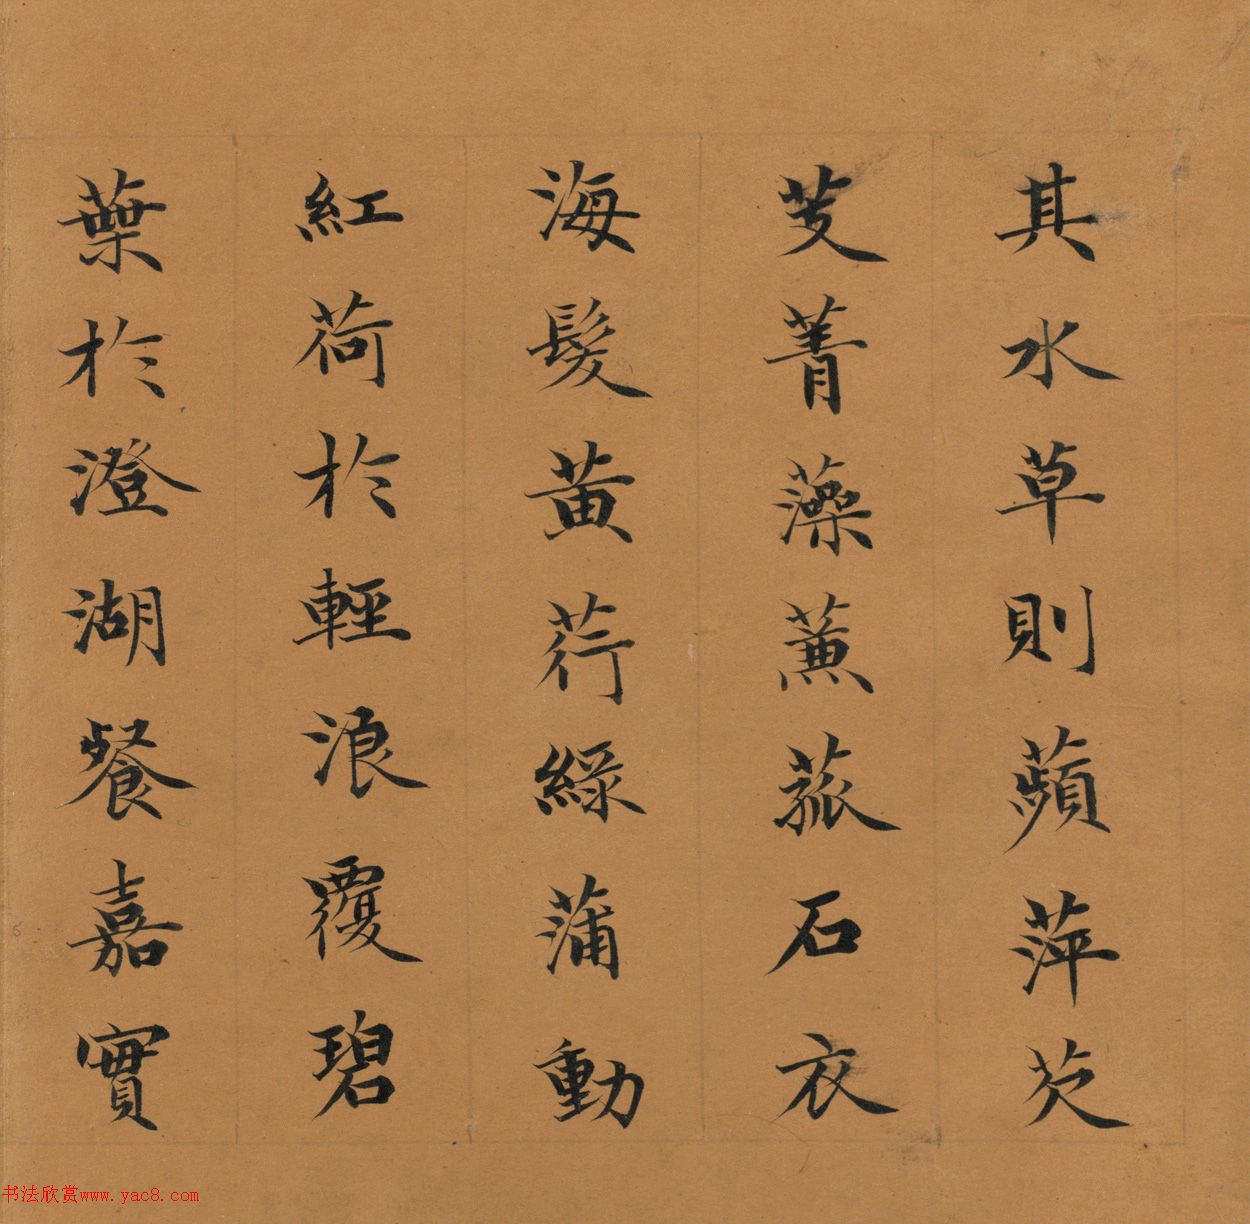 其水草則蘋萍芡
芰菁藻薕菰石衣
海髮黄荇綠蒲動
紅荷於輕浪覆碧
葉於澄湖餐嘉實
书法欣赏www.yac8.com